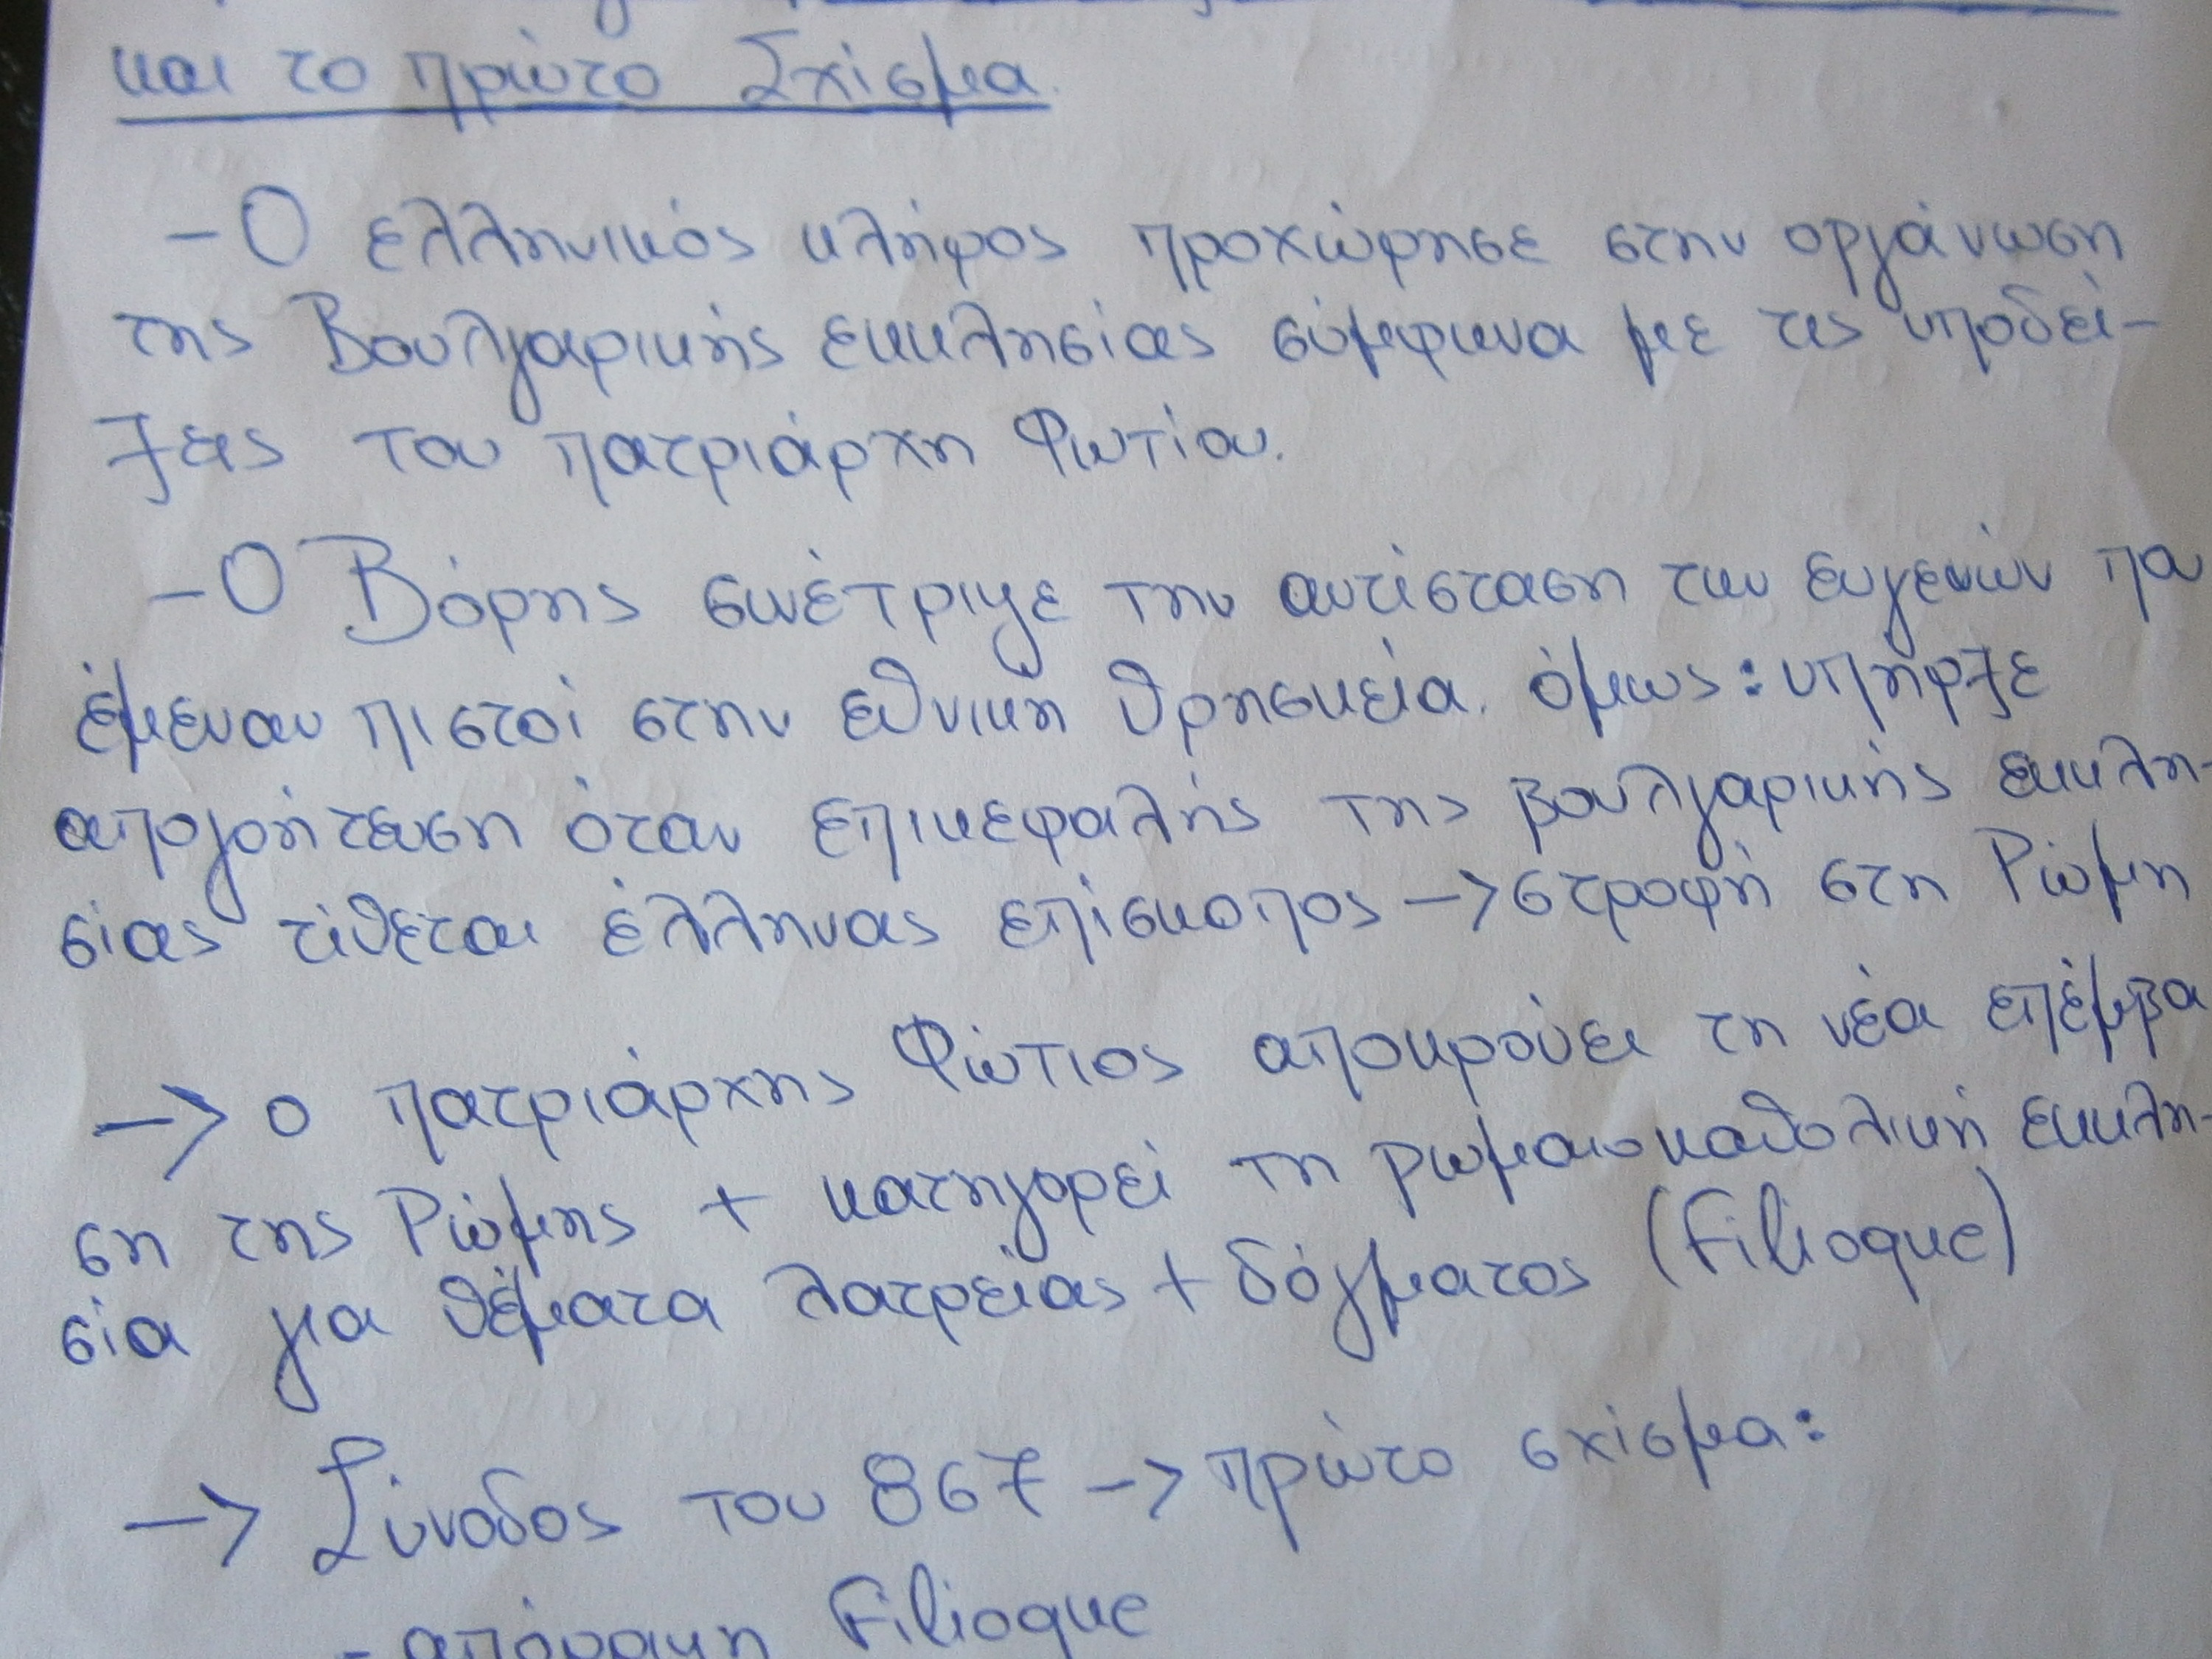 και το πρώτο Σχίσμα.
- Ο ελληνικός κλήρος προχώρησε στην οργάνωση
της Βουλγαρικής εκκλησίας σύμφωνα με τις υποδεί-
ξεις του πατριάρχη Φωτίου.
- Ο Βόρης συνέτριψε την αντίσταση των ευγενών που
έμεναν πιστοί στην εθνική θρησκεία. όμως: υπήρξε
απογοήτευση όταν επικεφαλής της βουλγαρικής εκκλη-
σίας τίθεται έλληνας επίσκοπος -> στροφή στη Ρώμη
-> ο πατριάρχης Φώτιος αποκρούει τη νέα επέμβα
ση της Ρώμης + κατηγορεί τη ρωμαιοκαθολική εκκλη-
σία για θέματα λατρείας + δόγματος (Filioque)
-> Σύνοδος του 867 -> πρώτο σχίσμα:
- Filioque